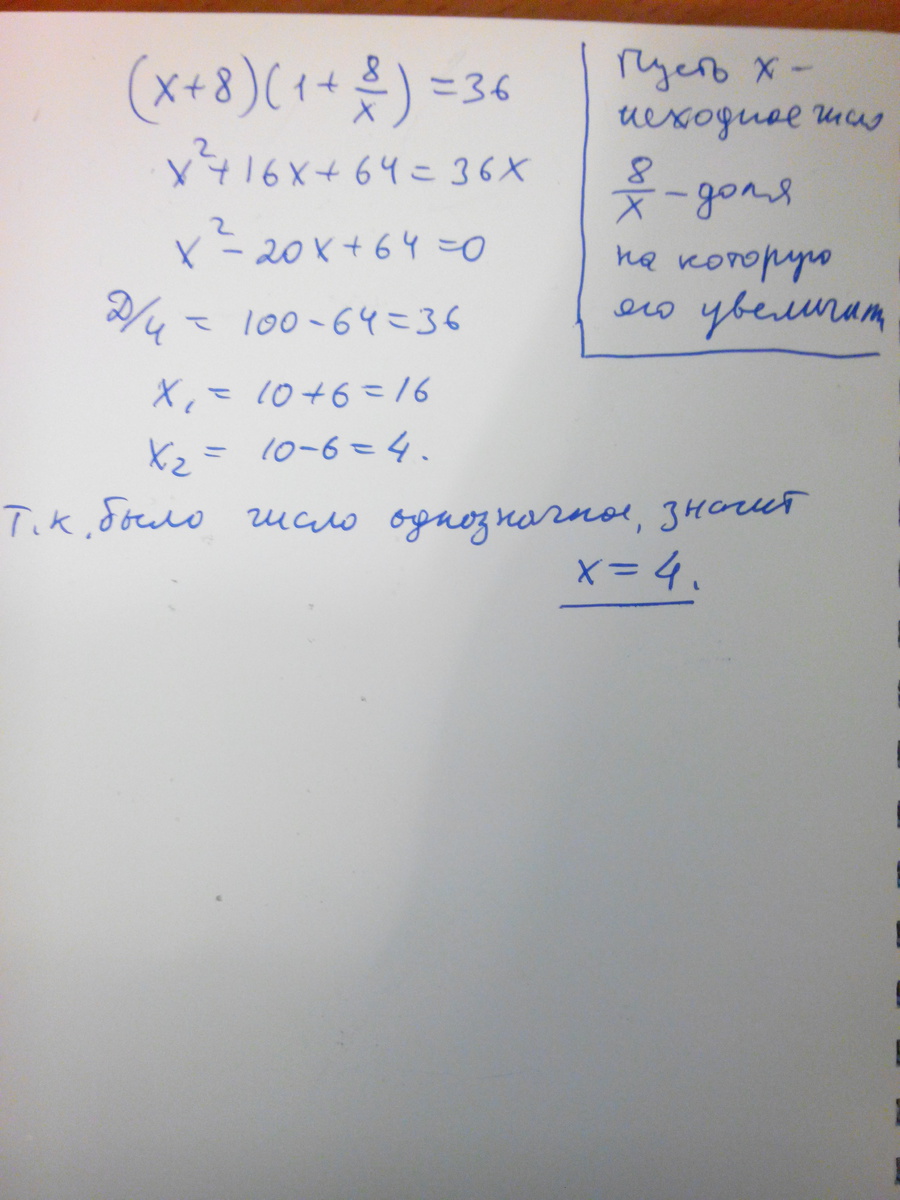 (x+8)(1+8/x)=36
x²+16x+64=36x
x²-20x+64=0
D/4 = 100-64=36
x₁ = 10+6=16
x₂ = 10-6=4.
Т.к. было число однозначное, значит
x=4.
Пусть x –
исходное число
8/x – доля
на которую
его увеличат